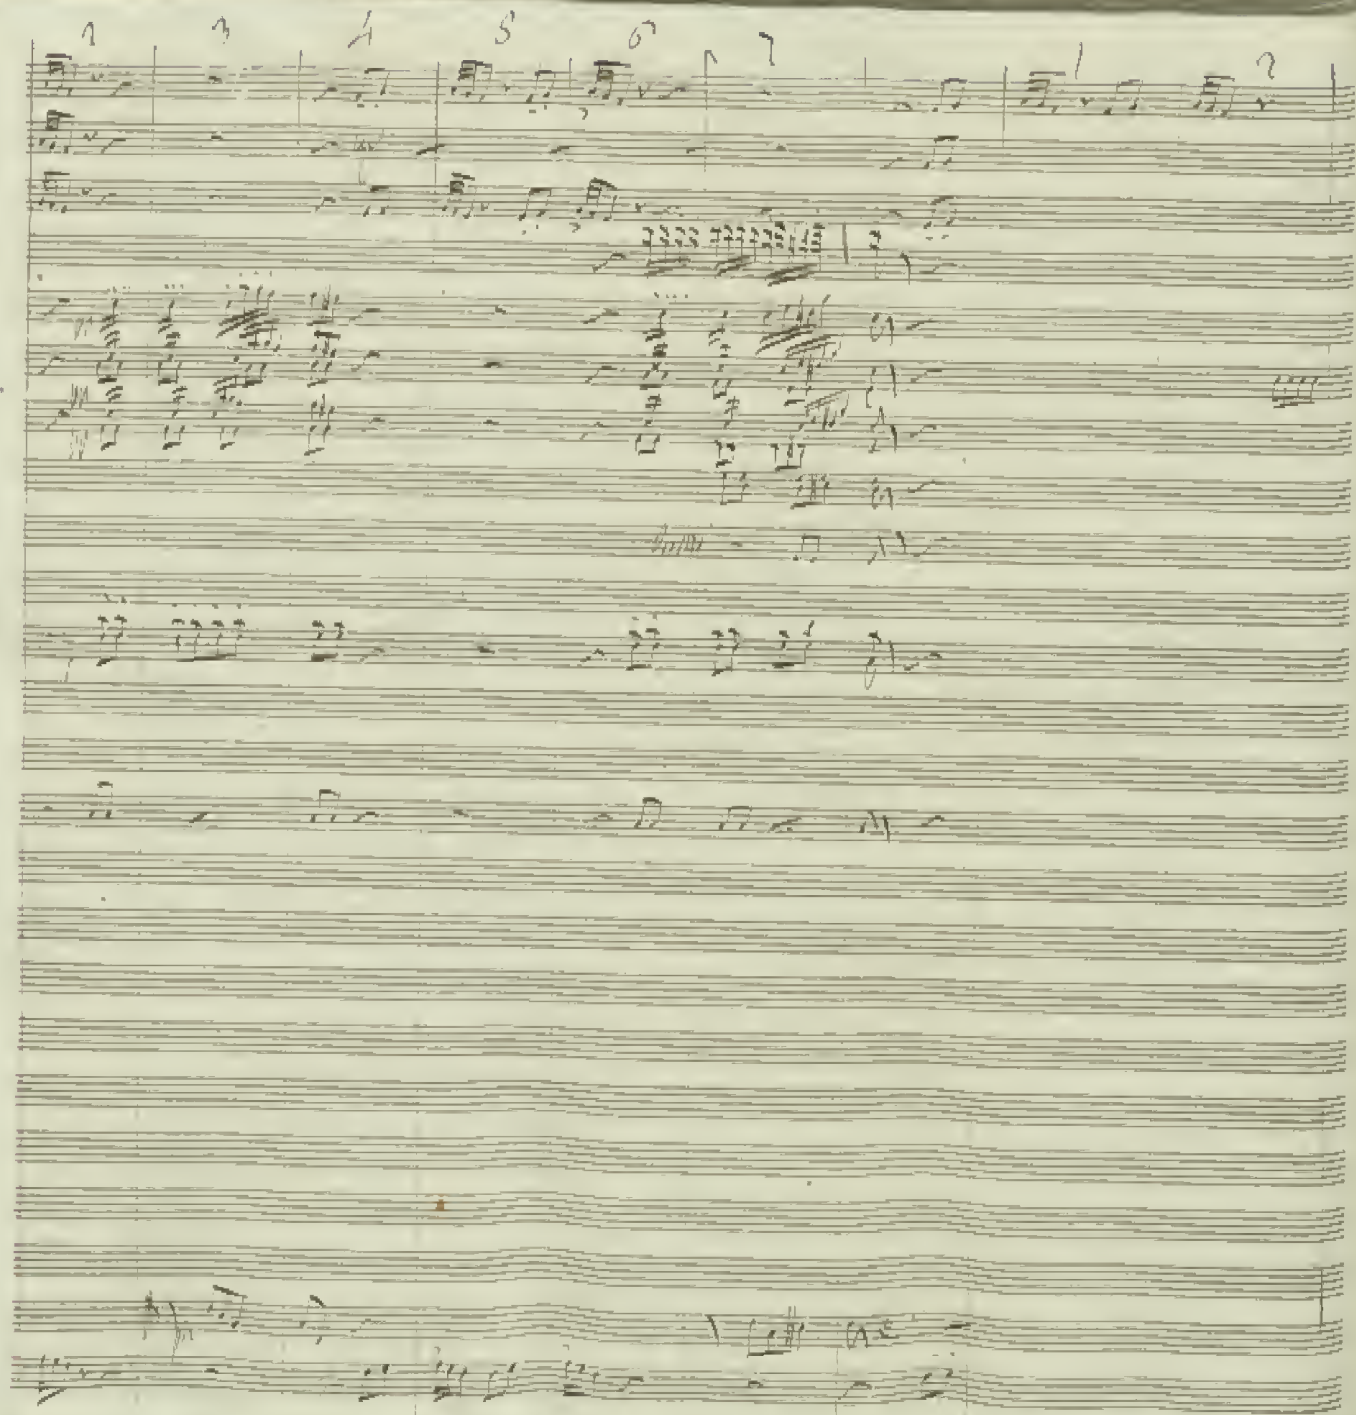 2 3 4 5 6 7 1 2